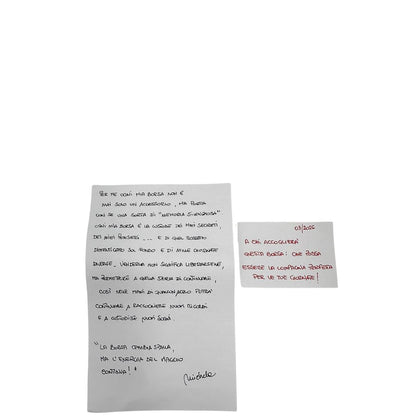 PER ME OGNI MIA BORSA NON È
MAI SOLO UN ACCESSORIO, MA PORTA
CON SE UNA SORTA DI "MEMORIA SILENZIOSA"
OGNI MIA BORSA È LA CUSTODE DEI MIEI SEGRETI,
DEI MIEI PENSIERI... E DI QUEL ROSSETTO
DIMENTICATO SUL FONDO E DI ALCUNE GIORNATE
INTENSE. VENDERLA NON SIGNIFICA LIBERARSENE,
MA PERMETTERE A QUELLA STORIA DI CONTINUARE,
COSÌ NELLE MANI DI QUALCUN'ALTRO POTRÀ
CONTINUARE A RACCOGLIERE NUOVI RICORDI
E A CUSTODIRE NUOVI SOGNI.
"LA BORSA CAMBIA SPALLA,
MA L'ENERGIA DEL VIAGGIO
CONTINUA!"
03/2026
A CHI ACCOGLIERÀ
QUESTA BORSA: CHE POSSA
ESSERE LA COMPAGNA PERFETTA
PER LE TUE GIORNATE!